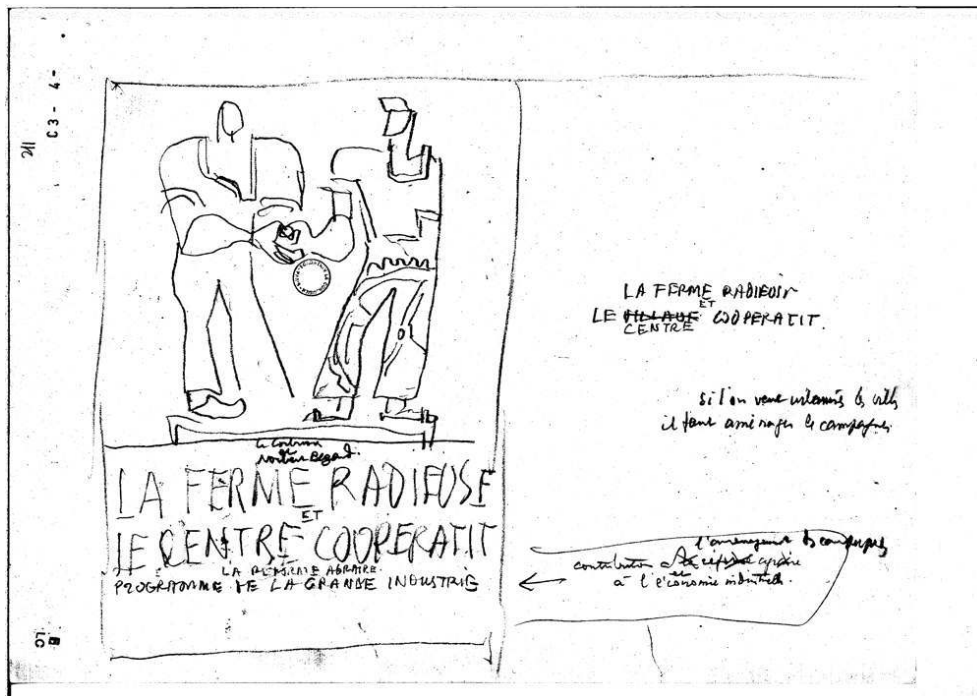 211
C3-4-
Le Corbusier
et
Norbert Bezard.
LA FERME RADIEUSE
ET
LE CENTRE COOPERATIF
LA REFORME AGRAIRE
PROGRAMME DE LA GRANDE INDUSTRIE
LA FERME RADIEUSE
ET
LE VILLAGE COOPERATIF.
CENTRE
si l'on veut urbaniser les villes
il faut aménager les campagnes
l'aménagement des campagnes
contribution à la réforme agraire
et
à l'économie industrielle.